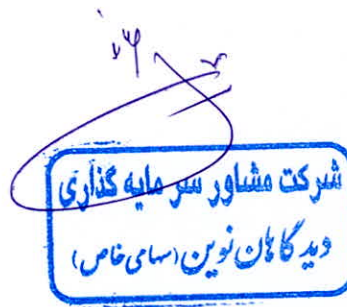 شرکت مشاور سرمایه گذاری
دیدگاهان نوین (سهامی خاص)